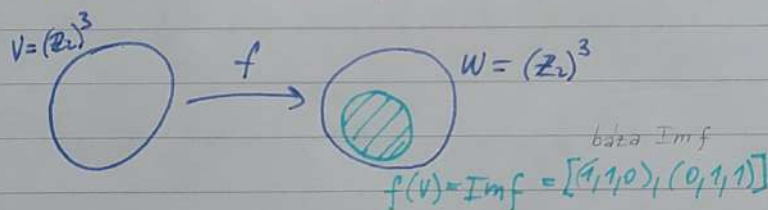 V = (ℤ₂)³
f
W = (ℤ₂)³
báza Im f
f(V) = Im f = [(1,1,0), (0,1,1)]